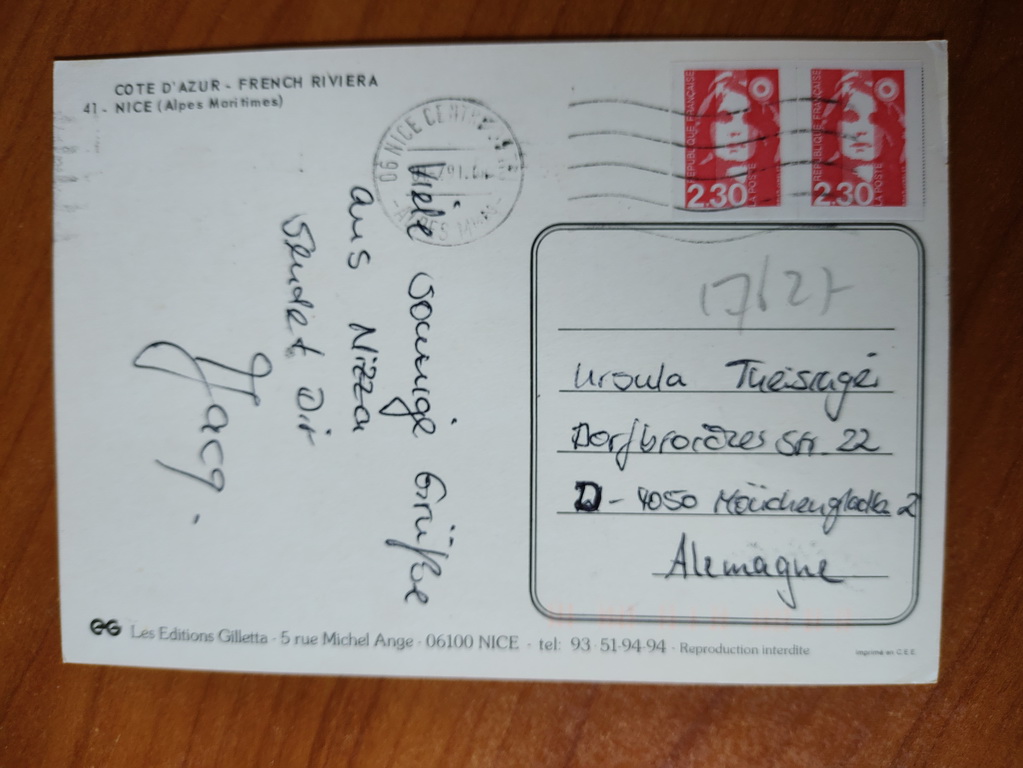 COTE D'AZUR - FRENCH RIVIERA
41 - NICE (Alpes Maritimes)
06 NICE CENTRE
RÉPUBLIQUE FRANÇAISE
2.30
LA POSTE
RÉPUBLIQUE FRANÇAISE
2.30
LA POSTE
Viele sonnige Grüße
aus Nizza
sendet Dir
17/27
Ursula
Str. 22
D - 4050 2
Alemagne
Les Editions Gilletta - 5 rue Michel Ange - 06100 NICE - tel: 93-51-94-94 - Reproduction interdite
Imprimé en C.E.E.